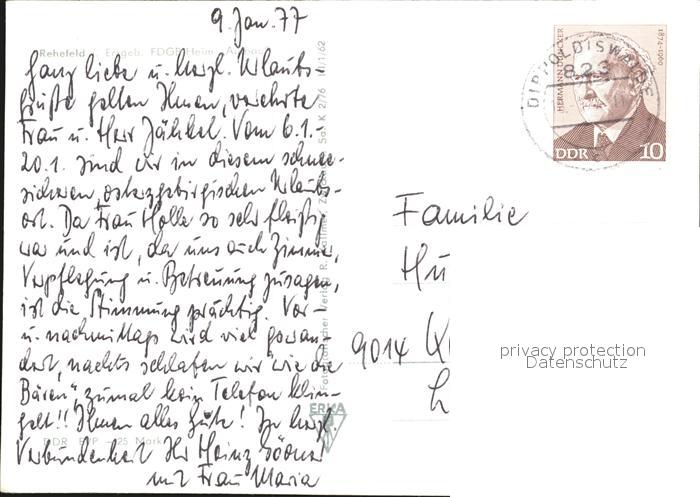 9. Jan. 77
Rehefeld / Erzgeb. FDGB-Heim
Ganz liebe u. herzl. Urlaubs-
grüße gelten Ihnen, verehrte
Frau u. Herr Jähkel. Vom 6.1.-
20.1. sind wir in diesem schnee-
sicheren, osterzgebirgischen Urlaubs-
ort. Da Frau Holle so sehr fleißig
war und ist, da uns auch Zimmer,
Verpflegung u. Betreuung zusagen,
ist die Stimmung prächtig. Vor-
u. nachmittags wird viel gewan-
dert, nachts schlafen wir "wie die
Bären", zumal kein Telefon klin-
gelt!! Ihnen alles Gute! In herzl.
Verbundenheit Ihr Heinz
mit Frau Maria
DDR EVP -25 Mark
ERKA
K 2/76
DIPPOLDISWALDE
823
HERMANN DUNCKER
1874-1960
DDR 10
Familie
Hu
9014
privacy protection
Datenschutz